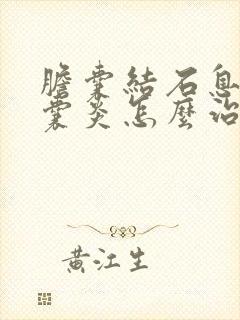 膽囊結石息
囊炎怎麼治
黃江生